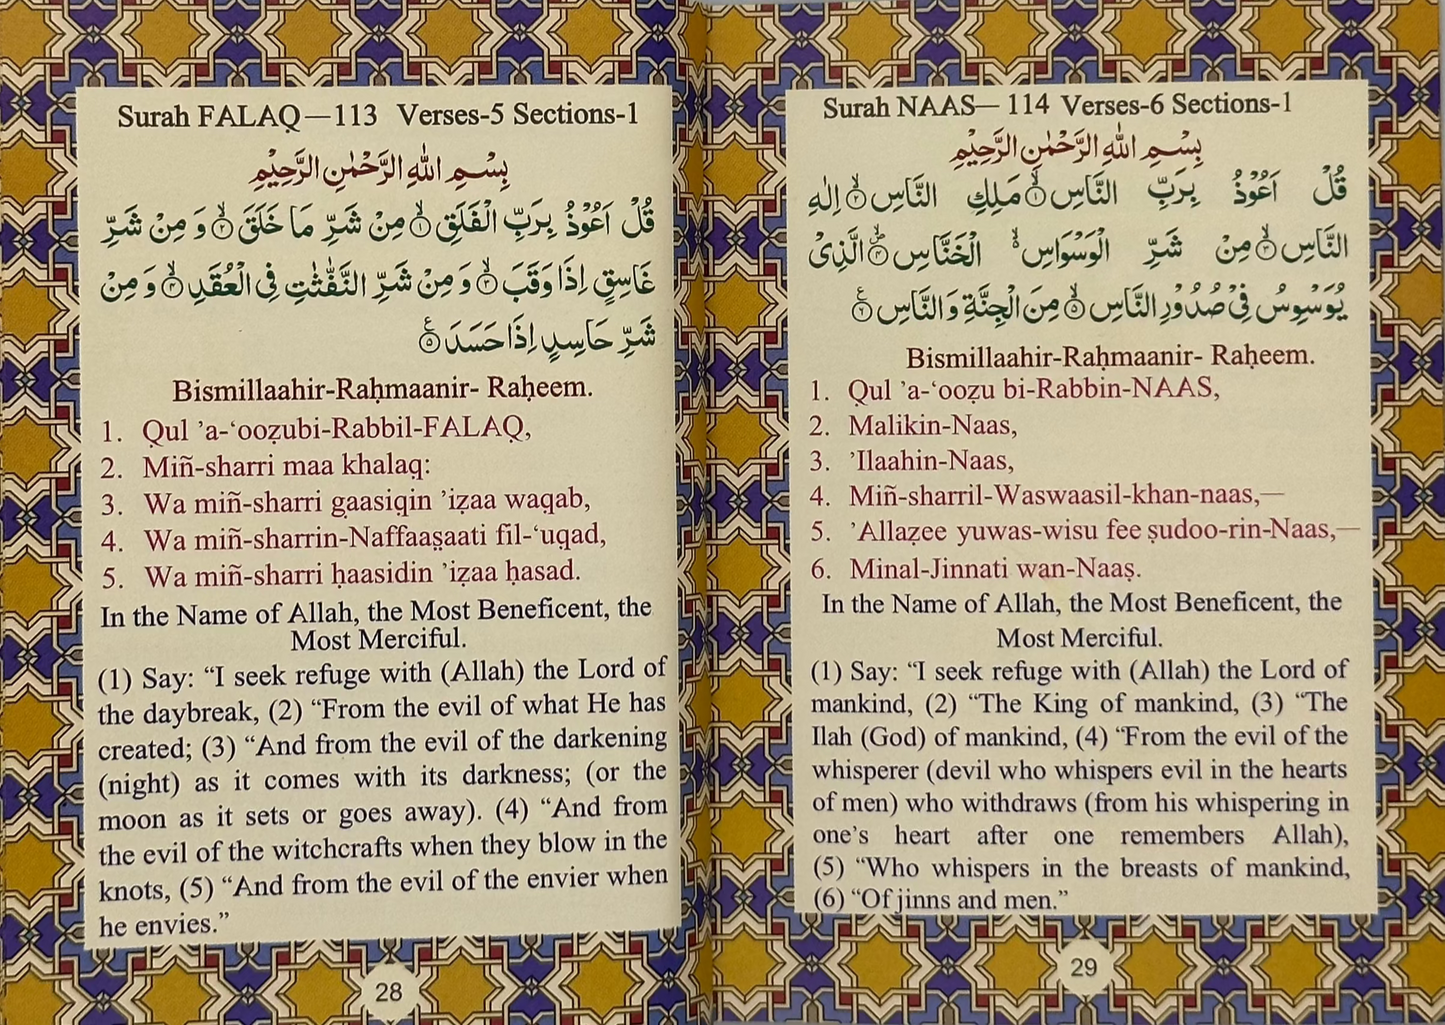 Surah FALAQ—113 Verses-5 Sections-1
بِسْمِ اللّٰهِ الرَّحْمٰنِ الرَّحِيْمِ
قُلْ اَعُوْذُ بِرَبِّ الْفَلَقِ ۙ۱ مِنْ شَرِّ مَا خَلَقَ ۙ۲ وَ مِنْ شَرِّ
غَاسِقٍ اِذَا وَقَبَ ۙ۳ وَ مِنْ شَرِّ النَّفّٰثٰتِ فِی الْعُقَدِ ۙ۴ وَ مِنْ
شَرِّ حَاسِدٍ اِذَا حَسَدَ ۵
Bismillaahir-Raḥmaanir- Raḥeem.
1. Qul ’a-‘ooẓubi-Rabbil-FALAQ,
2. Miñ-sharri maa khalaq:
3. Wa miñ-sharri gaasiqin ’iẓaa waqab,
4. Wa miñ-sharrin-Naffaaṣaati fil-‘uqad,
5. Wa miñ-sharri ḥaasidin ’iẓaa ḥasad.
In the Name of Allah, the Most Beneficent, the
Most Merciful.
(1) Say: “I seek refuge with (Allah) the Lord of
the daybreak, (2) “From the evil of what He has
created; (3) “And from the evil of the darkening
(night) as it comes with its darkness; (or the
moon as it sets or goes away). (4) “And from
the evil of the witchcrafts when they blow in the
knots, (5) “And from the evil of the envier when
he envies.”
28
Surah NAAS— 114 Verses-6 Sections-1
بِسْمِ اللّٰهِ الرَّحْمٰنِ الرَّحِيْمِ
قُلْ اَعُوْذُ بِرَبِّ النَّاسِ ۙ۱ مَلِكِ النَّاسِ ۙ۲ اِلٰهِ
النَّاسِ ۙ۳ مِنْ شَرِّ الْوَسْوَاسِ ۙ۬ الْخَنَّاسِ ۪ۙ۴ الَّذِیْ
يُوَسْوِسُ فِیْ صُدُوْرِ النَّاسِ ۙ۵ مِنَ الْجِنَّةِ وَ النَّاسِ ۶
Bismillaahir-Raḥmaanir- Raḥeem.
1. Qul ’a-‘ooẓu bi-Rabbin-NAAS,
2. Malikin-Naas,
3. ’Ilaahin-Naas,
4. Miñ-sharril-Waswaasil-khan-naas,—
5. ’Allaẓee yuwas-wisu fee ṣudoo-rin-Naas,—
6. Minal-Jinnati wan-Naaṣ.
In the Name of Allah, the Most Beneficent, the
Most Merciful.
(1) Say: “I seek refuge with (Allah) the Lord of
mankind, (2) “The King of mankind, (3) “The
Ilah (God) of mankind, (4) “From the evil of the
whisperer (devil who whispers evil in the hearts
of men) who withdraws (from his whispering in
one’s heart after one remembers Allah),
(5) “Who whispers in the breasts of mankind,
(6) “Of jinns and men.”
29